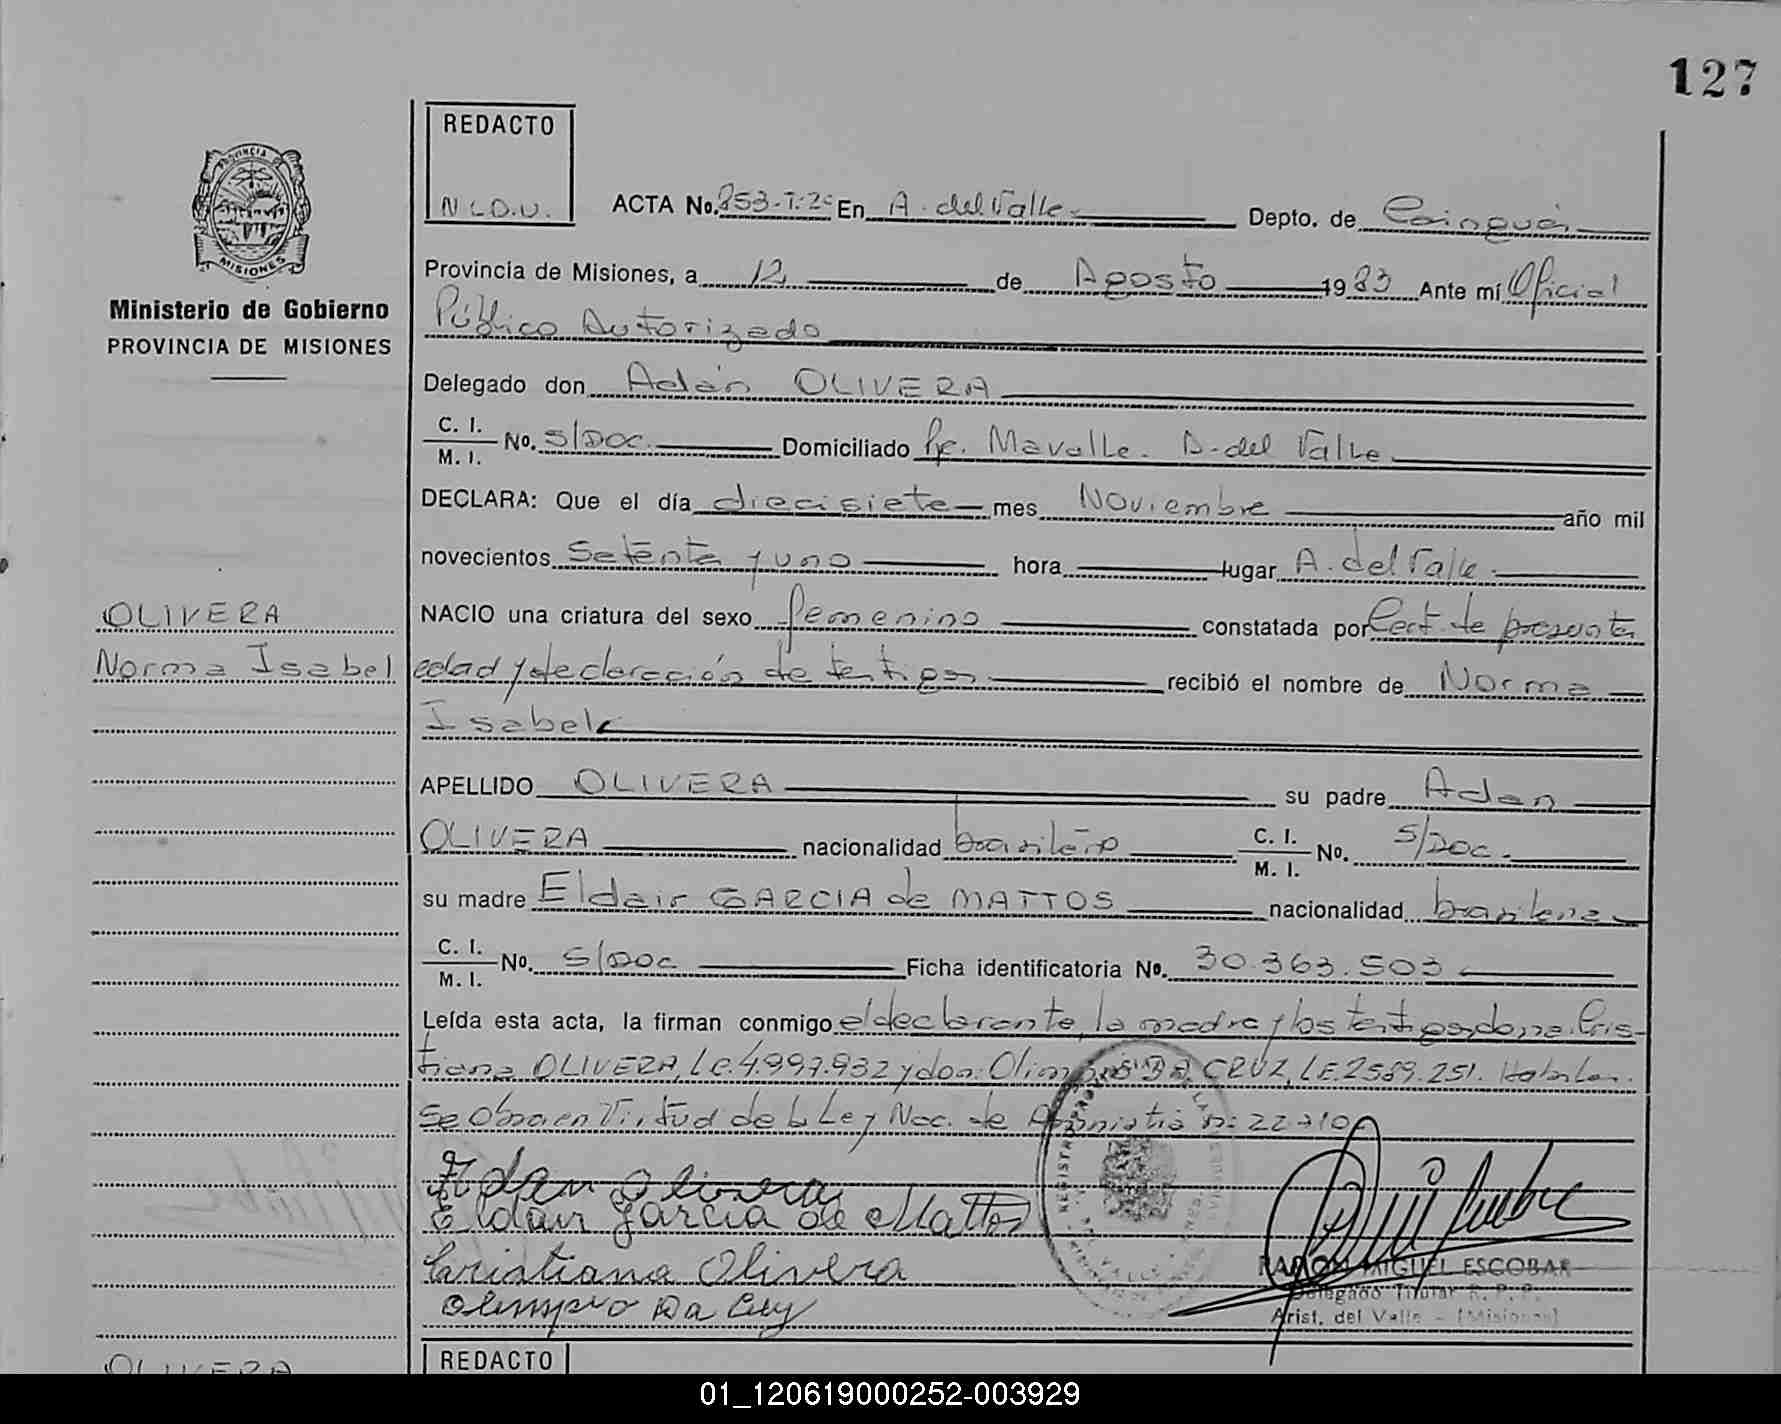 127
REDACTO
N.L.D.U.
ACTA No. 853-T:2º En A. del Valle Depto. de Cainguás
PROVINCIA DE
MISIONES
Provincia de Misiones, a 12 de Agosto 1983 Ante mí Oficial
Ministerio de Gobierno
PROVINCIA DE MISIONES
Público Autorizado
Delegado don Adán OLIVERA
C. I.
M. I. No. S/DOC. Domiciliado Pje. Mavalle. A. del Valle
DECLARA: Que el día diecisiete mes Noviembre año mil
novecientos Setenta y uno hora lugar A. del Valle
OLIVERA
Norma Isabel
NACIO una criatura del sexo femenino constatada por Cert. de presunta
edad y declaración de testigos recibió el nombre de Norma
Isabel
APELLIDO OLIVERA su padre Adan
OLIVERA nacionalidad brasileño C. I.
M. I. No. S/DOC.
su madre Eldair GARCIA de MATTOS nacionalidad brasilena
C. I.
M. I. No. S/DOC Ficha identificatoria No. 30.363.503
Leída esta acta, la firman conmigo el declarante, la madre y los testigos dona Cris-
tiana OLIVERA, L.C. 4.997.932 y don Olimpio DA CRUZ, L.E. 2589.251. Habiles.
Se Obra en Virtud de la Ley Nac. de Amnistia nº 22710
Adan Olivera
Eldair Garcia de Mattos
Cristiana Olivera
Olimpio Da Cruz
RAMON MIGUEL ESCOBAR
Delegado Titular R. P. P.
Arist. del Valle - (Misiones)
OLIVERA
REDACTO
01_120619000252-003929